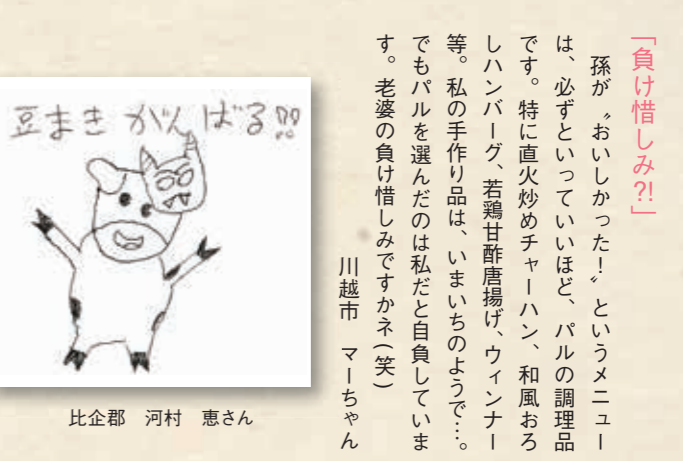 「負け惜しみ?!」
孫が〝おいしかった!〟というメニュー
は、必ずといっていいほど、パルの調理品
です。特に直火炒めチャーハン、和風おろ
しハンバーグ、若鶏甘酢唐揚げ、ウィンナー
等。私の手作り品は、いまいちのようで…。
でもパルを選んだのは私だと自負していま
す。老婆の負け惜しみですかネ(笑)
川越市 マーちゃん
豆まき がんばる!!
比企郡 河村 恵さん